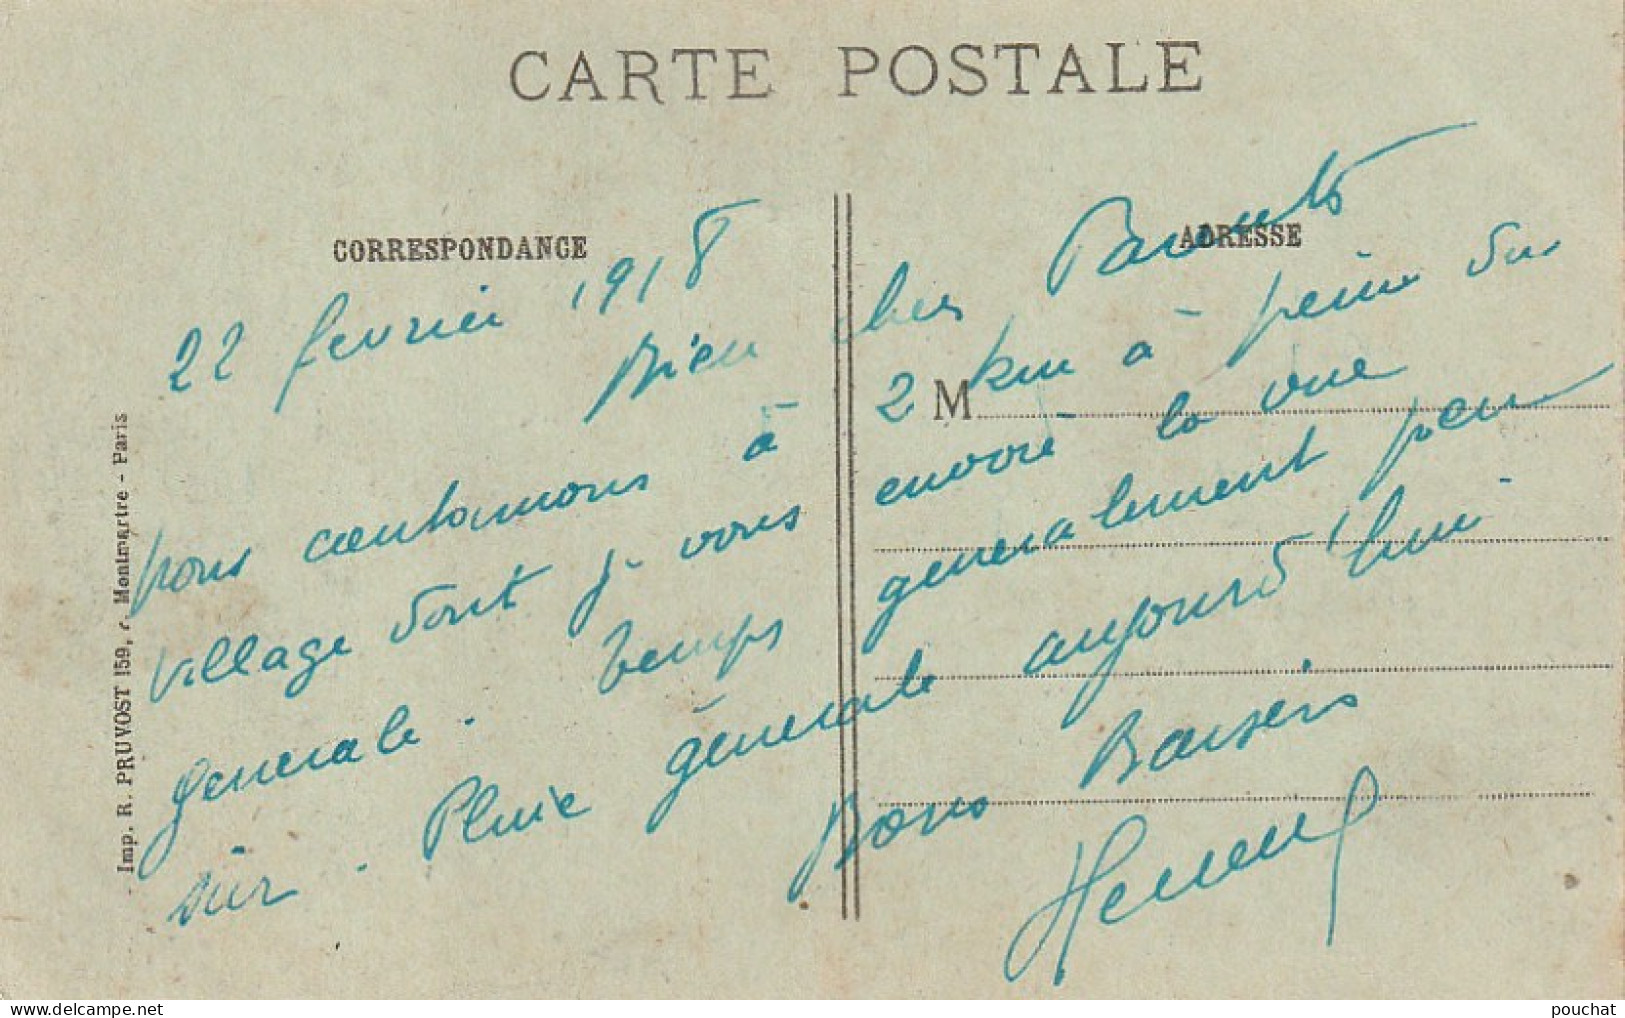 CARTE POSTALE
CORRESPONDANCE
ADRESSE
22 fevrier 1918
Bien chers Parents
nous cantonnons à 2 km à peine du
village dont je vous envoie la vue
generale. Temps generalement peu
sûr. Pluie générale aujourd'hui
Bons Baisers
M
Imp. R. PRUVOST 159, r. Montmartre - Paris
pouchat